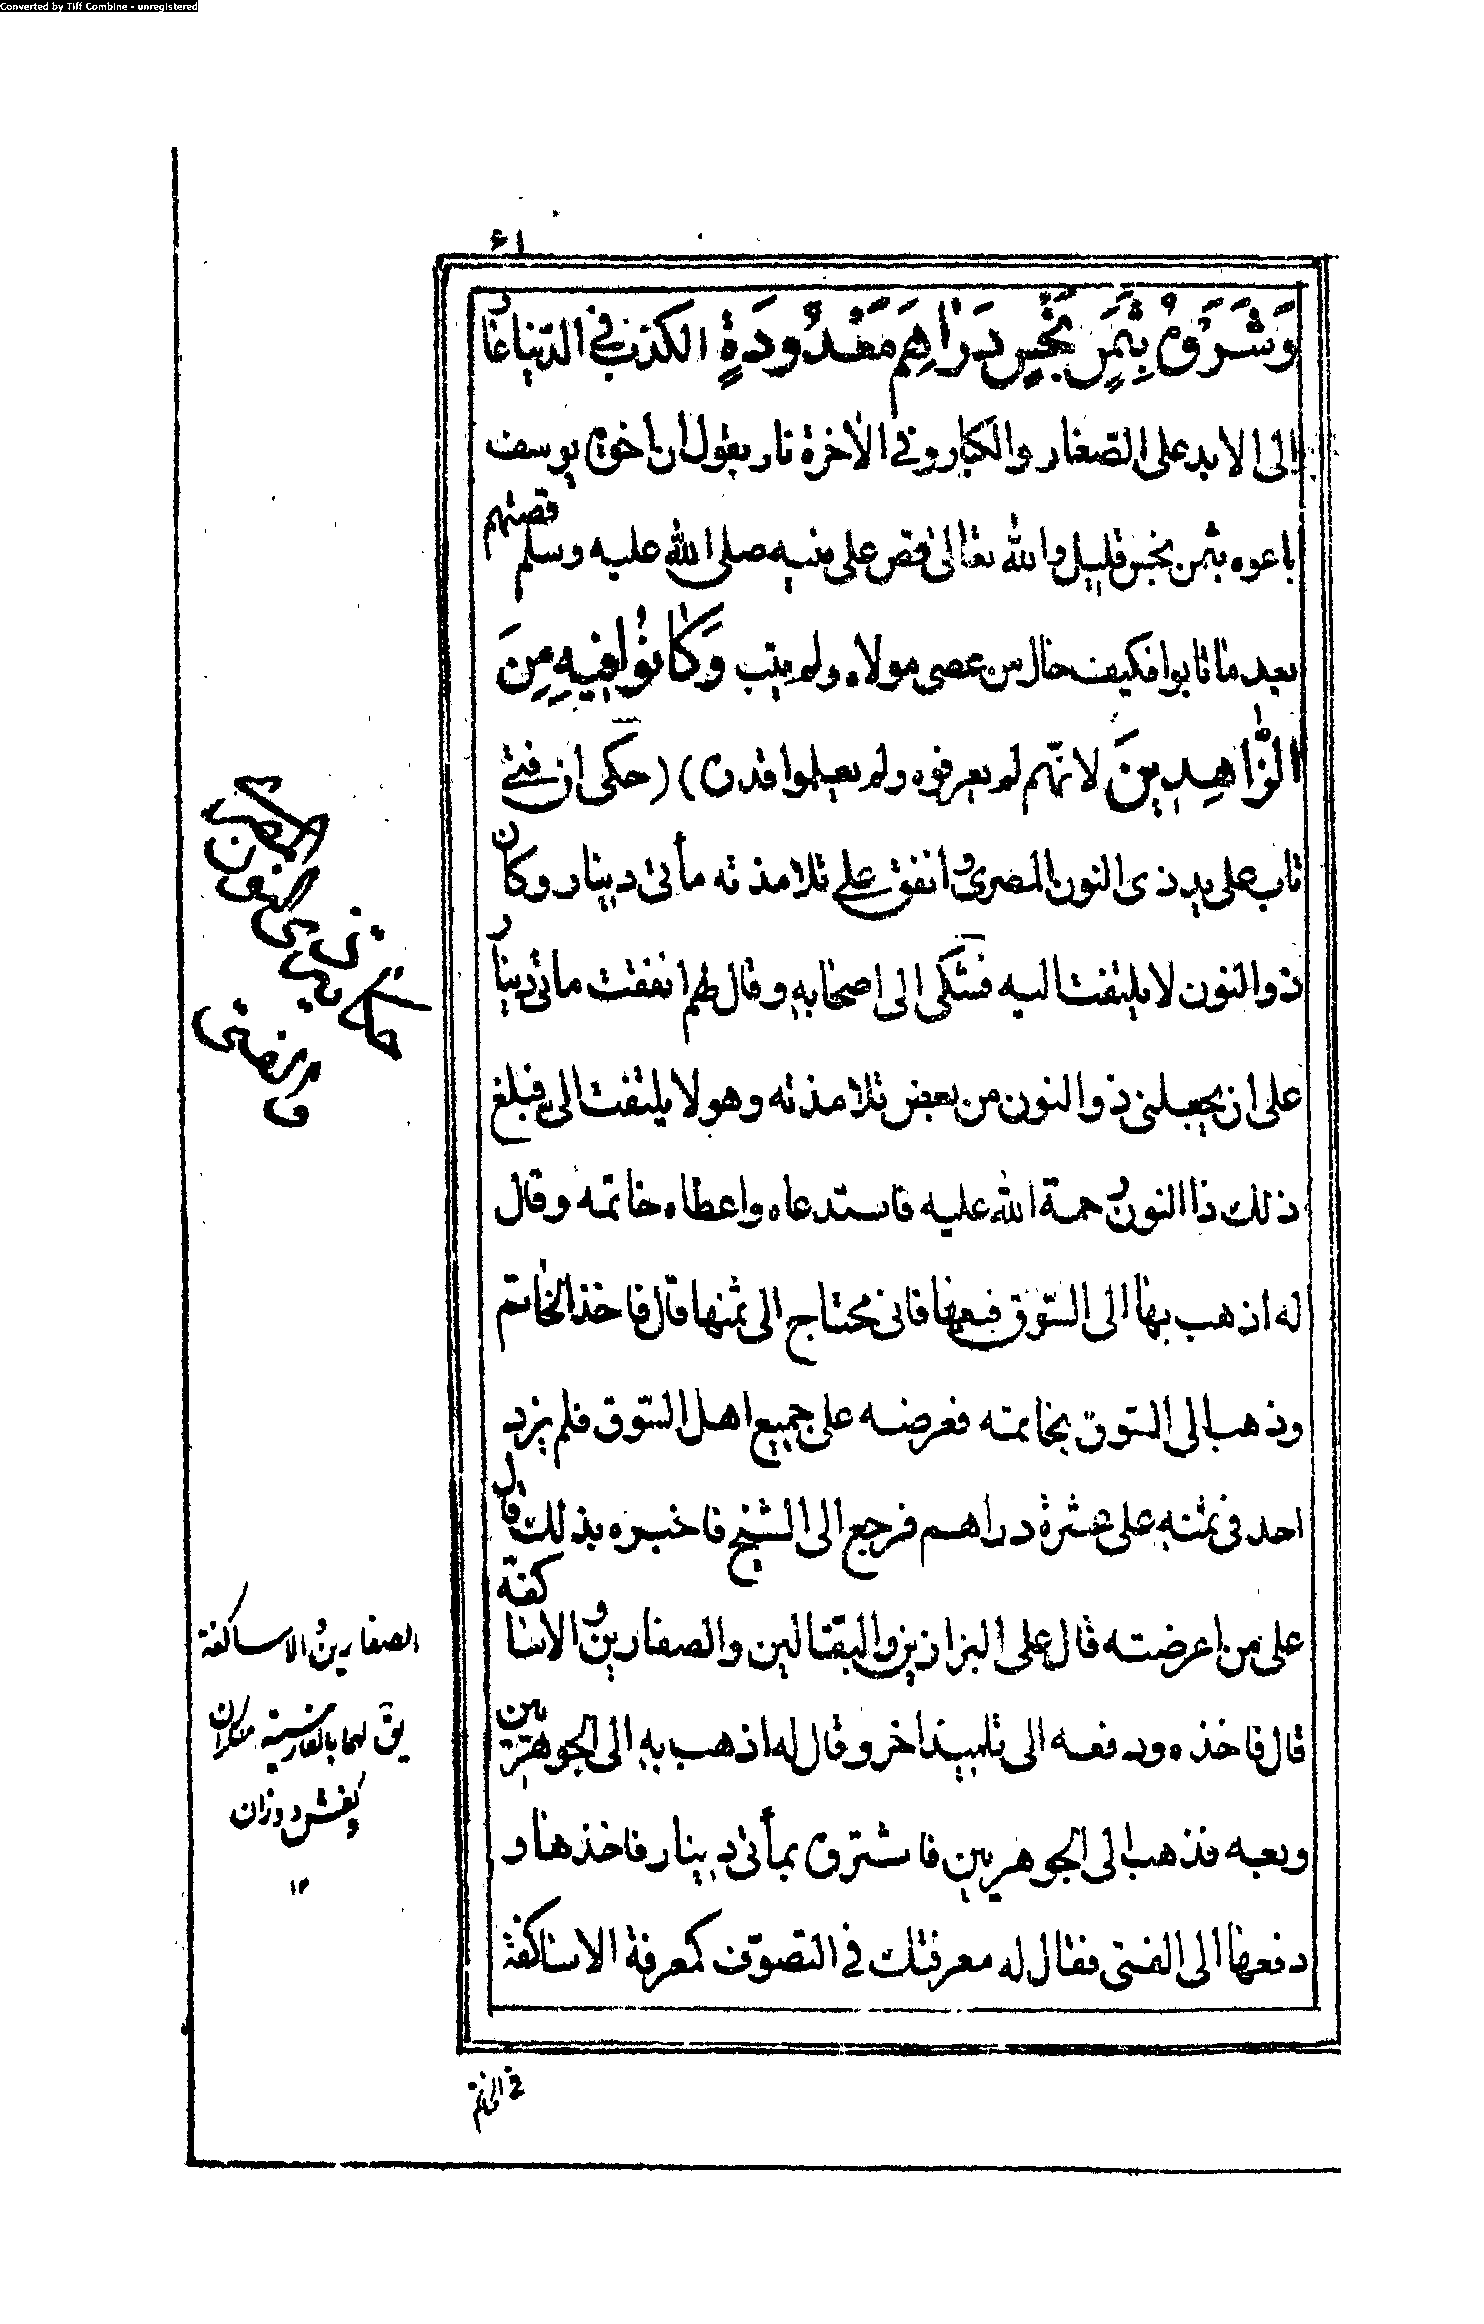 Converted by Tiff Combine - unregistered
٤١
وَشَرَوْهُ بِثَمَنٍ بَخْسٍ دَرَاهِمَ مَعْدُودَةٍ الكذب فى الدنيا عار
الى الابد على الصغار والكبار وفى الآخرة نار يقول ان اخوة يوسف
باعوه بثمن بخس قليل والله تعالى قص على نبيه صلى الله عليه وسلم قصتهم
بعد ما تابوا فكيف حال من عصى مولاه ولم يتب وَكَانُوا فِيهِ مِنَ
الزَّاهِدِينَ لانهم لم يعرفوه ولم يعلموا قدره) (حكى ان فتى
تاب على يد ذى النون المصرى وانفق على تلامذته مأتى دينار وكان
ذو النون لا يلتفت اليه فشكى الى اصحابه وقال لهم انفقت مأتى دينار
على ان يجعلنى ذو النون من بعض تلامذته وهو لا يلتفت الى فبلغ
ذلك ذا النون رحمة الله عليه فاستدعاه واعطاه خاتمه وقال
له اذهب بها الى السوق فبعها فانى محتاج الى ثمنها قال فاخذ الخاتم
وذهب الى السوق بخاتمه فعرضه على جميع اهل السوق فلم يزد
احد فى ثمنه على عشرة دراهم فرجع الى الشيخ فاخبره بذلك قال
على من اعرضته قال على البزازين والبقالين والصفارين والاساكفة
قال فاخذه ودفعه الى تلميذ اخر وقال له اذهب به الى الجوهريين
وبعه فذهب الى الجوهريين فاشتروه بمأتى دينار فاخذها و
دفعها الى الفتى فقال له معرفتك فى التصوف كمعرفة الاساكفة
فى الخاتم
حكاية ذى النون المصرى
والفتى
الصفارين والاساكفة
يق لهما بالفارسية
وكفش دوزان
١٢